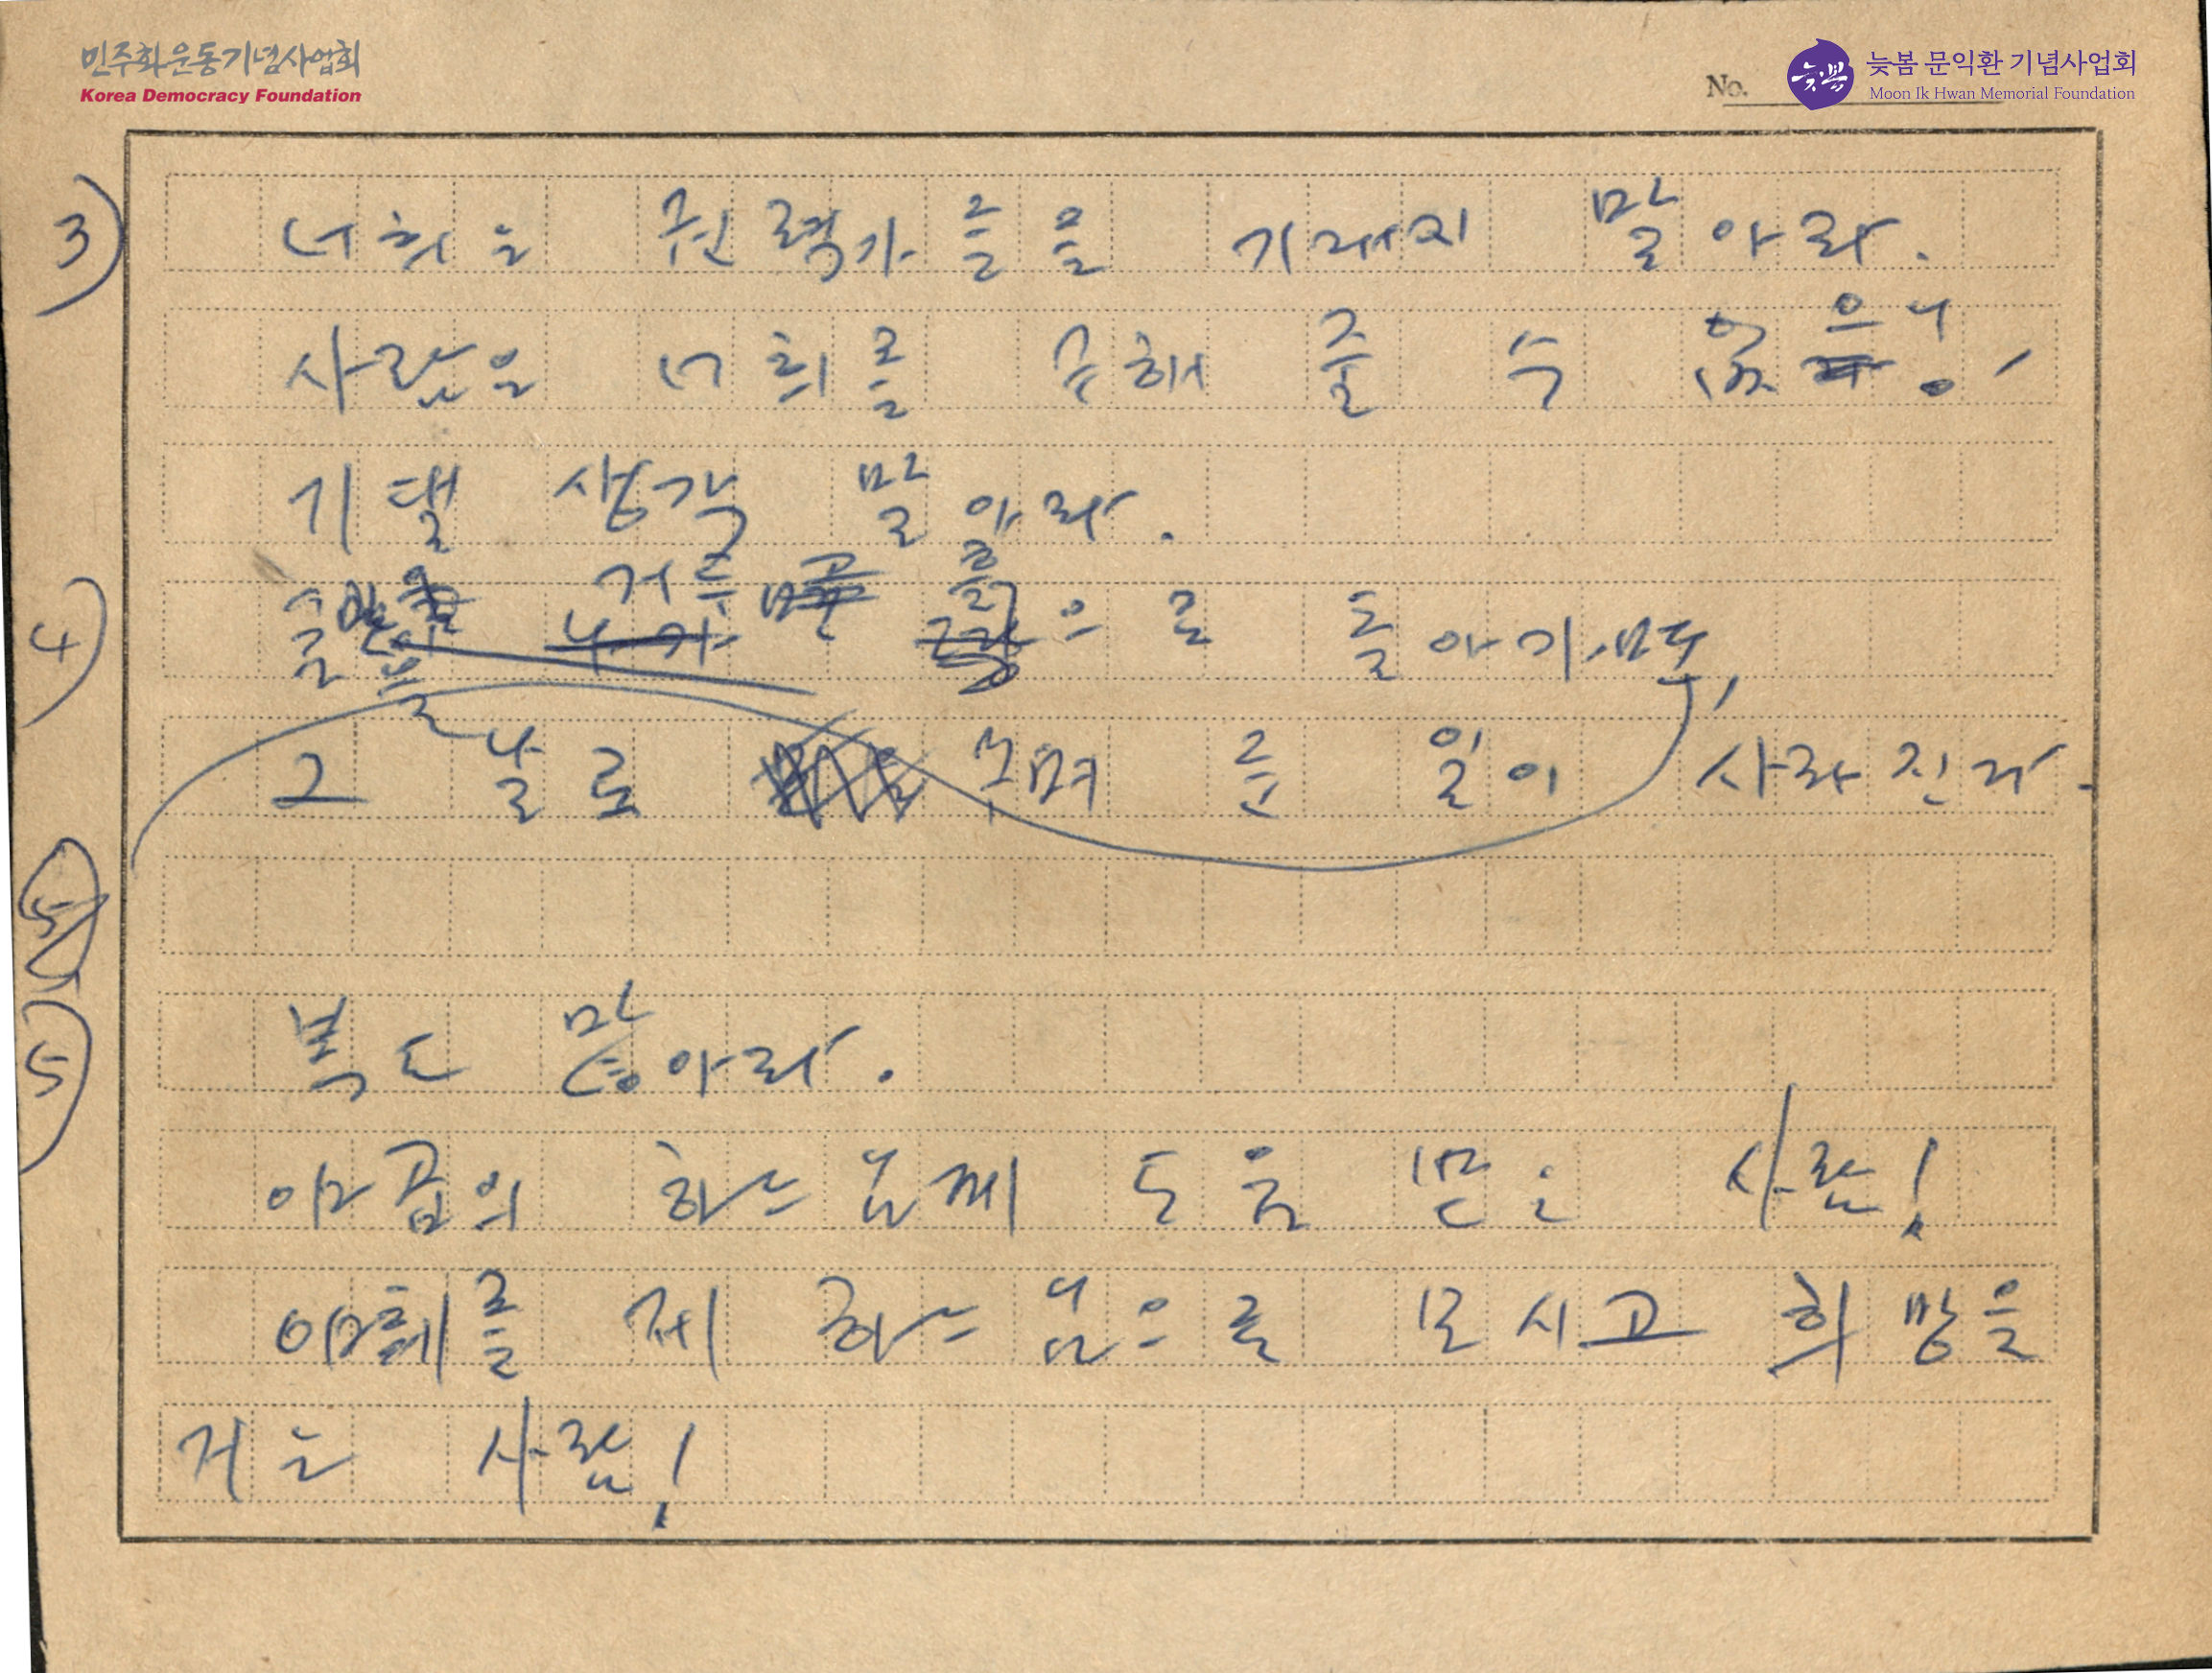 민주화운동기념사업회
Korea Democracy Foundation
No.
늦봄 문익환 기념사업회
Moon Ik Hwan Memorial Foundation
3) 너희는 권력가들을 기대지 말아라.
사람은 너희를 구해 줄 수 없으니,
기댈 생각 말아라.
4) 숨을 거두고 흙으로 돌아가면,
그 날로 꾸며 둔 일이 사라진다.
5) 복도 많아라.
야곱의 하느님께 도움 받는 사람!
야훼를 제 하느님으로 모시고 희망을
거는 사람!